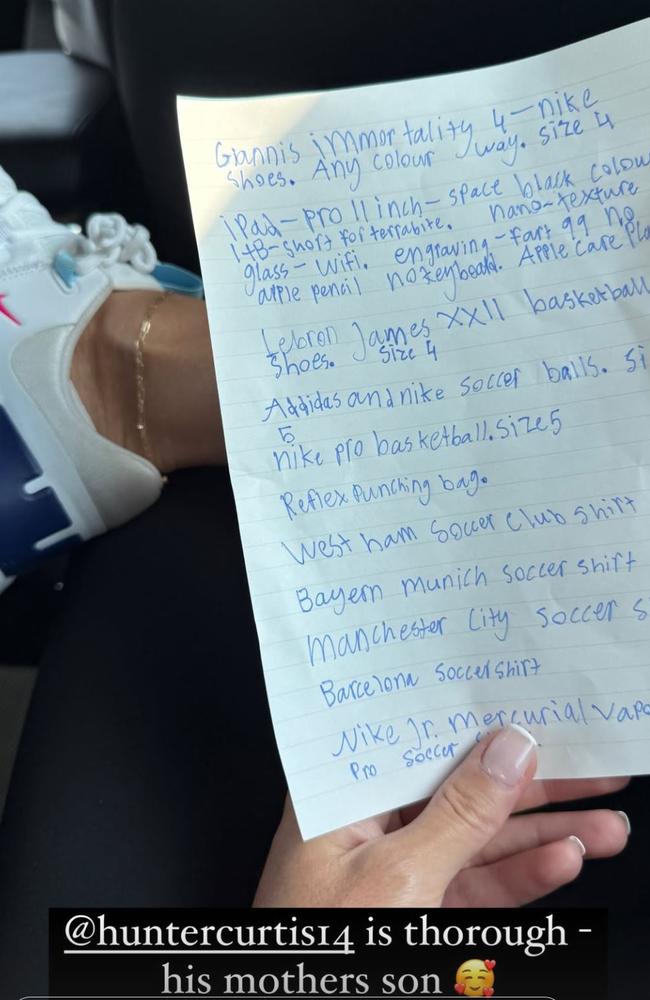 Giannis immortality 4-nike
shoes. Any colour way. size 4
iPad-pro 11 inch- space black colou
1tB-short for terrabite. nano-texture
glass- wifi. engraving-fart 99 no
apple pencil no keyboard. Apple care Plu
Lebron James XXII basketball
shoes. size 4
Addidas and nike soccer balls. si
5
nike pro basketball. size 5
Reflex Punching bag.
West ham soccer club shirt
Bayern munich soccer shirt
Manchester City soccer s
Barcelona soccer shirt
Nike Jr. mercurial Vapo
Pro soccer
@huntercurtis14 is thorough -
his mothers son 🥰